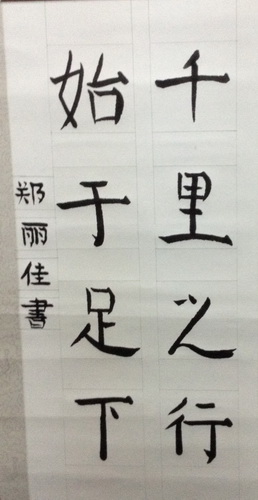 千里之行
始于足下
郑丽佳書